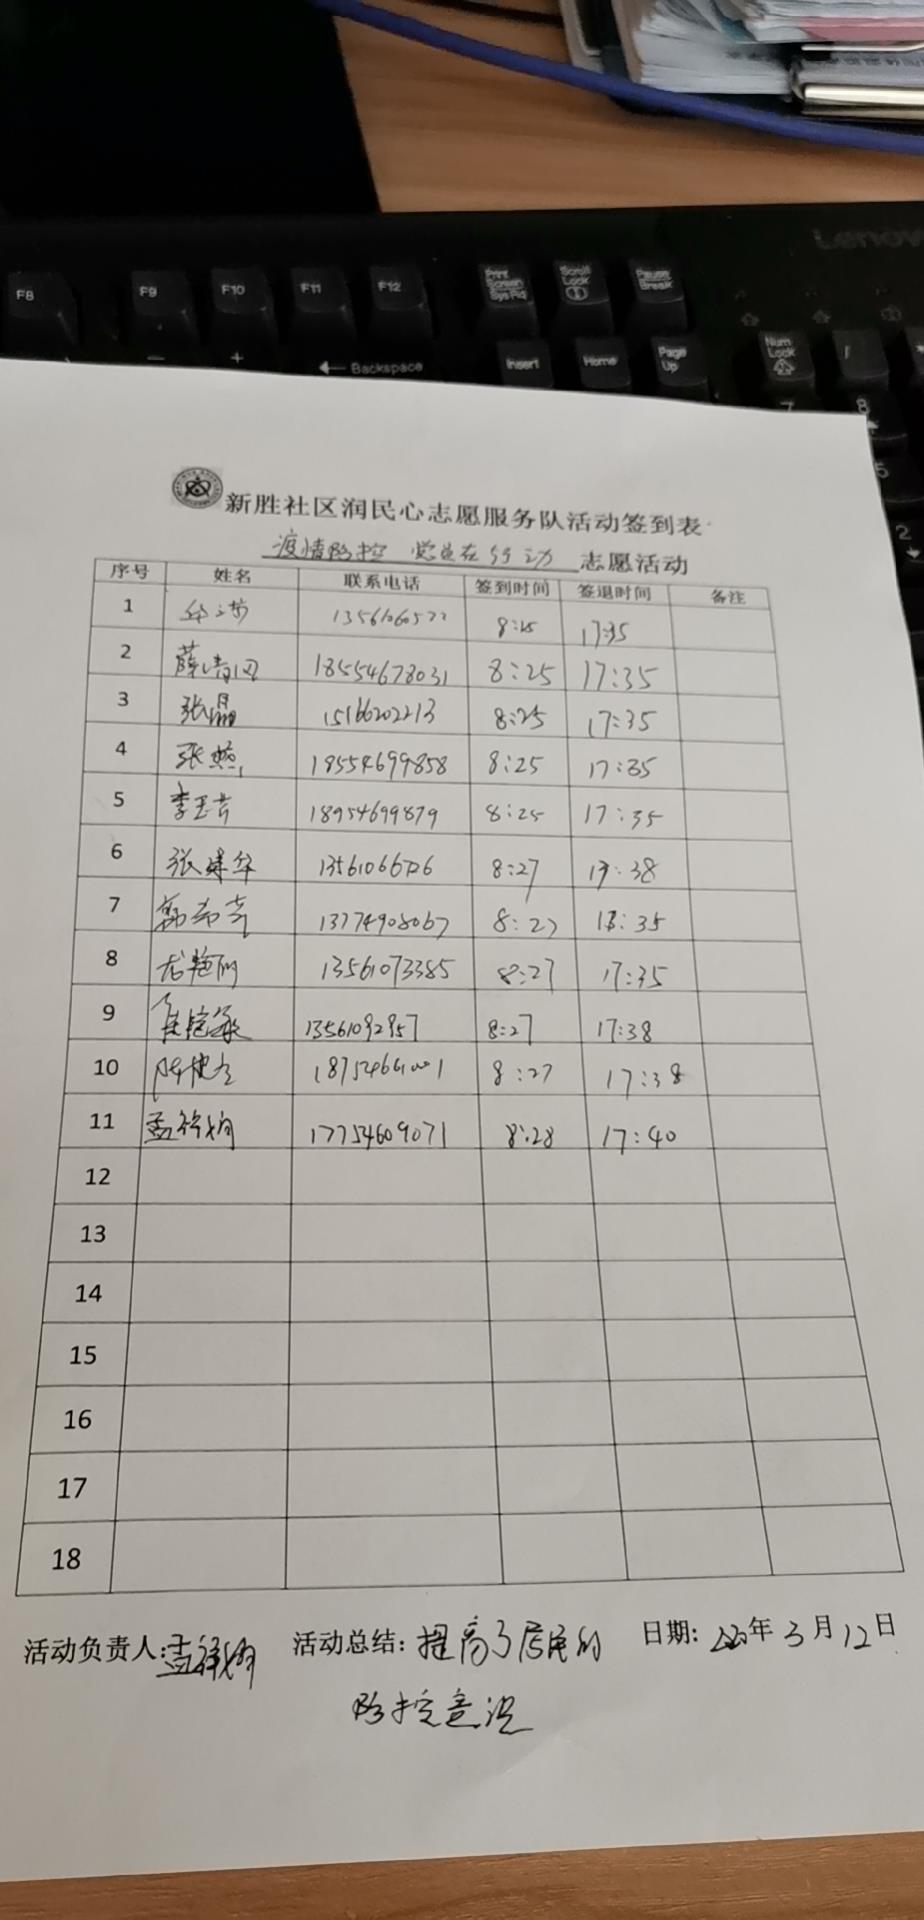 Lenovo
F8 F9 F10 F11 F12 Print Screen SysRq Scroll Lock Pause Break
Backspace Insert Home Page Up Num Lock /
7 8
5
2
新胜社区润民心志愿服务队活动签到表
疫情防控 党员在行动 志愿活动
序号 姓名 联系电话 签到时间 签退时间 备注
1 8:25 17:35
2 18554678031 8:25 17:35
3 张晶 15166202213 8:25 17:35
4 张燕 18554699858 8:25 17:35
5 李玉芳 18954699879 8:25 17:35
6 张建华 8:27 17:38
7 13774908067 8:27 17:35
8 13561073385 8:27 17:35
9 13561092957 8:27 17:38
10 8:27 17:38
11 17754609071 8:28 17:40
12
13
14
15
16
17
18
活动负责人: 活动总结: 提高了居民的 日期: 年3月12日
防控意识